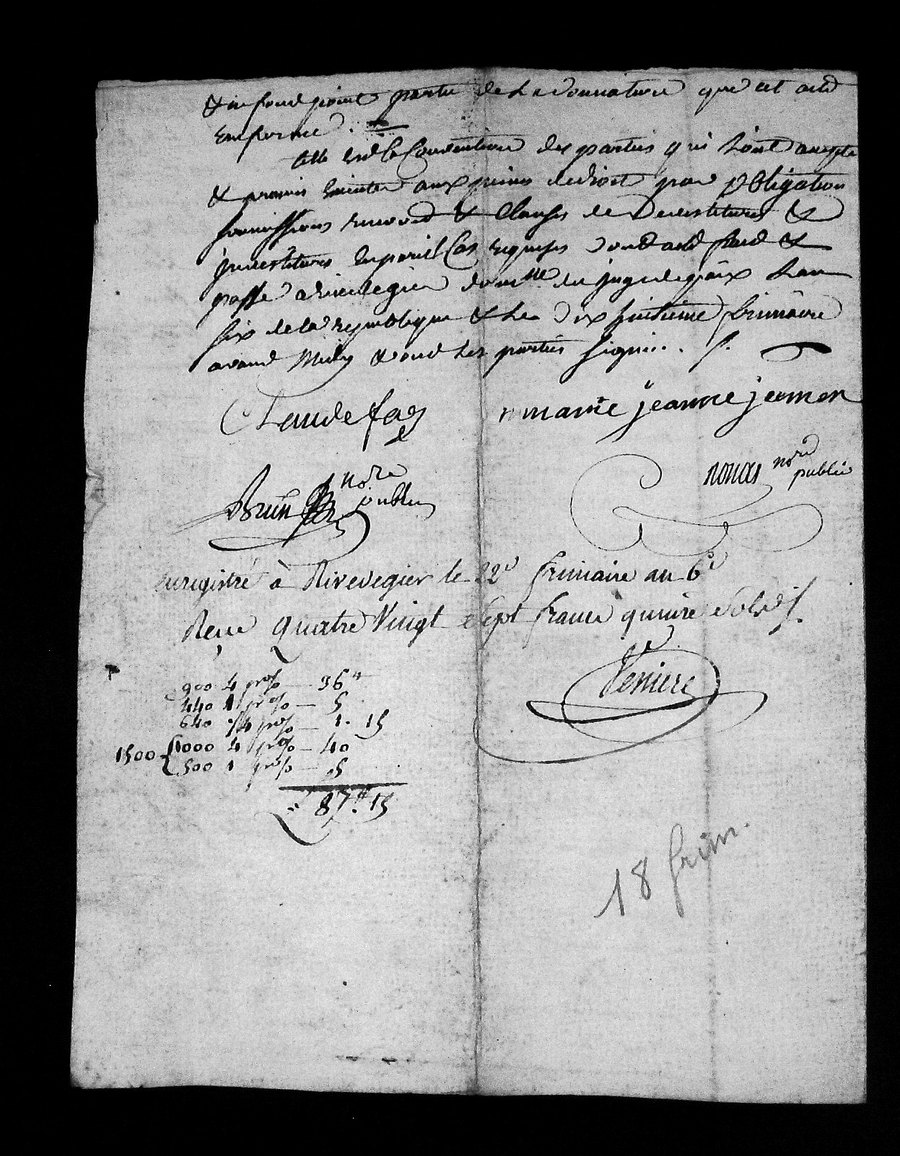 & ne fond point partie de la donnation que cet acte
Enferme .
telle est la Convention des parties qui l'ont accepté
& promis dexecuter aux peines de droit par obligation
soumissions renonces & clauses de Devestitures &
jnvestitures En pareil Cas requises dond acte fait &
passé a Rivedegier du juge de paix L'an
six de la republique & Le Dix huitieme frimaire
avand Midy & ond Les parties signé . /.
Claude fas
marie jeanne jeamon
Brun nore public
nore public
enregistré à Rivedegier le 22e frimaire an 6e
Reçu Quatre Vingt Sept francs quinze sols
900 4 pr% — 36 ll
440 1 pr% — 5
640 1/4 pr% — 1. 15
1500 { 1000 4 pr% — 40
500 1 pr% — 5
87 ll. 15
18 frim.